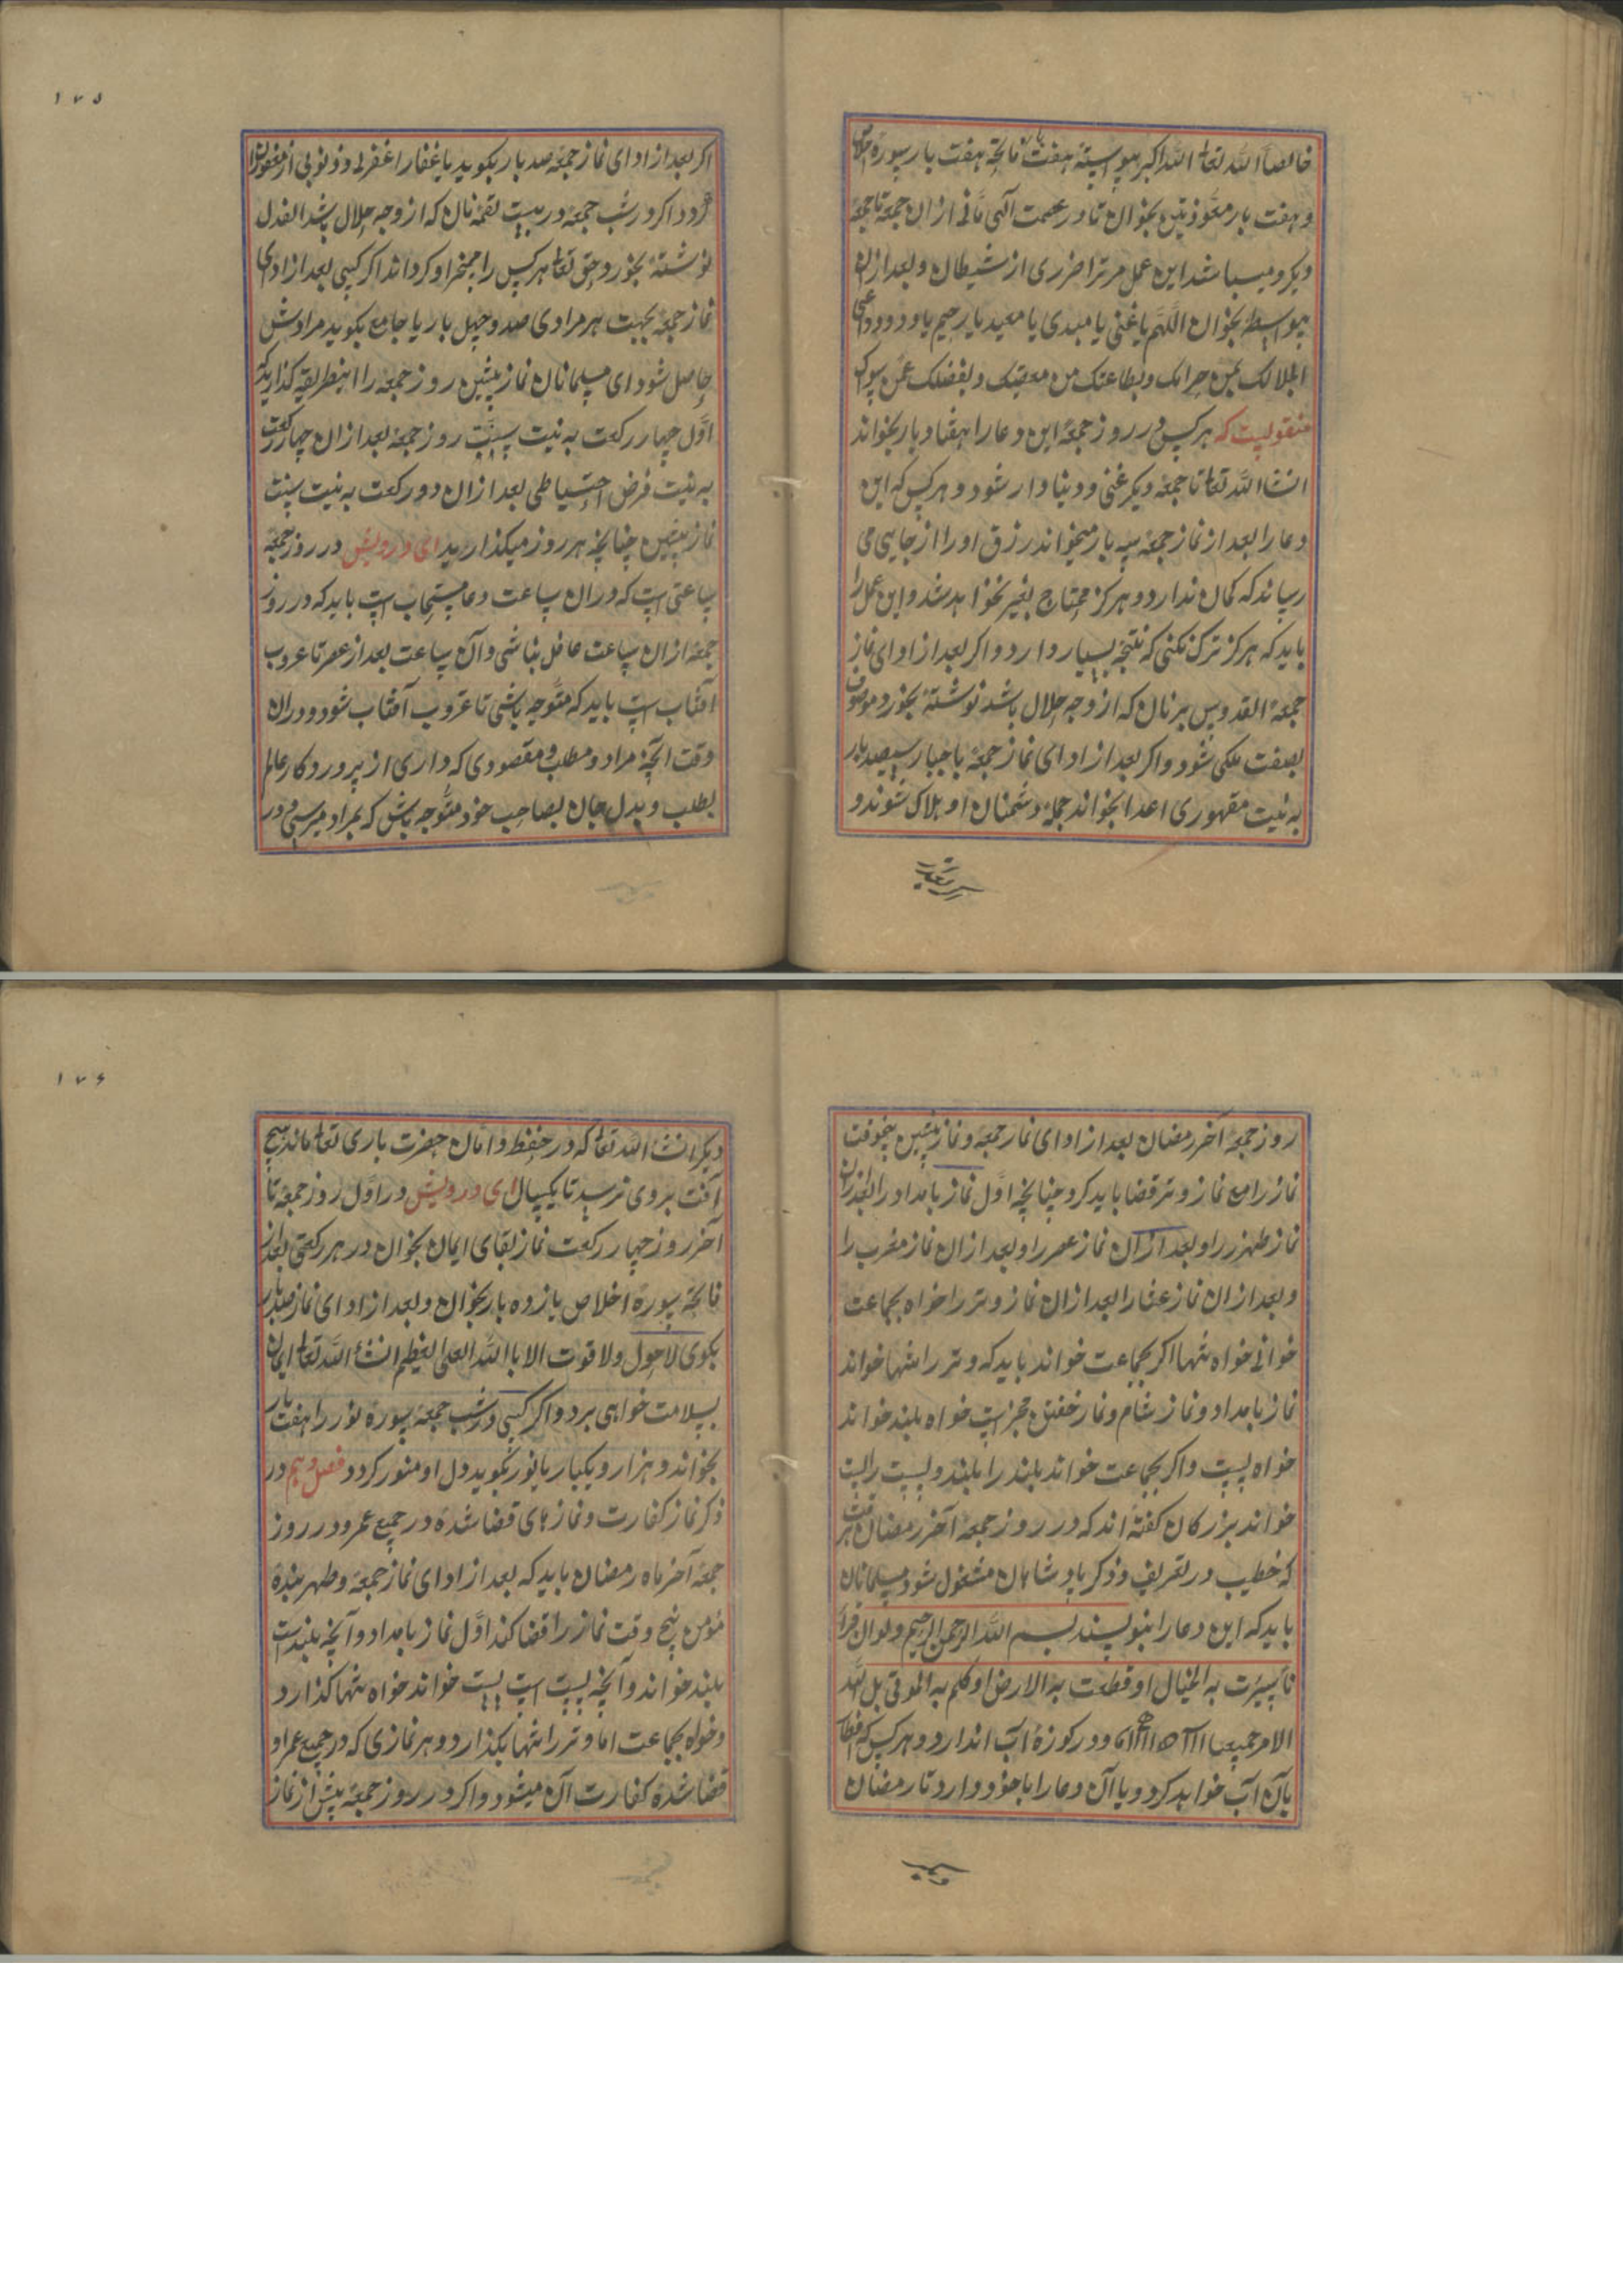 خالصا الله تعالی الله اکبر پیوسته هفت بار فاتحه هفت بار سوره اخلاص
و هفت بار معوذتین بخوان تا در عصمت الهی مانی از ان جمعه تا جمعه
دیکر و میباشد این عمل مر ترا ضرری از شیطان و بعد ازان
پیواسطه بخوان اللهم یا غنی یا مبدی یا معید یا رحیم یا ودود
بحلالک عن حرامک و بطاعتک من معصیتک و بفضلک عمن سواک
منقولیست که هر کس در روز جمعه این دعا را هفتاد بار بخواند
انشا الله تعالی تا جمعه دیکر غنی و دنیا دار شود و هر کس که این
دعا را بعد از نماز جمعه سه بار میخواند رزق او را از جایی می
رساند که کمان ندارد و هرکز محتاج بغیر نخواهد شد و این عمل را
باید که هرکز ترک نکنی که نتیجه بسیار دارد و اکر بعد از ادای نماز
جمعه القدوس بر نان که از وجه حلال باشد نوشته بخورد موصوف
بصفت ملکی شود و اکر بعد از ادای نماز جمعه یا جبار سیصد بار
به نیت مقهوری اعدا بخواند جمله دشمنان او هلاک شوند و
۱۷۵
اکر بعد از ادای نماز جمعه صد بار بکوید یا غفار اغفر لی ذنوبی از مغفوران
کردد اکر در شب جمعه در بیست لقمه نان که از وجه حلال باشد
نوشته بخورد حق تعالی هر کس را مسخر او کرداند اکر کسی بعد از ادای
نماز جمعه بجهت هر مرادی صد و چهل بار یا جامع بکوید مرادش
حاصل شود ای مسلمانان نماز پیشین روز جمعه را اینطریقه کذارید که
اول چهار رکعت به نیت سنت روز جمعه بعد ازان چهار رکعت
به نیت فرض احتیاطی بعد ازان دو رکعت به نیت سنت
نماز پیشین چنانچه هر روز میکذارید ای درویش در روز جمعه
ساعتی است که دران ساعت دعا مستجاب است باید که در روز
جمعه ازان ساعت غافل نباشی و آن ساعت بعد از عصر تا غروب
آفتاب است باید که متوجه باشی تا غروب آفتاب شود و دران
وقت آنچه مراد و مطلب و مقصودی که داری از پروردکار عالم
بطلب و بدل جان بصاحب خود متوجه باش که بمراد میرسی و در
روز جمعه آخر رمضان بعد از ادای نماز جمعه و نماز پیشین پنجوقت
نماز را مع نماز وتر قضا باید کرد چنانچه اول نماز بامداد را بعد ازان
نماز ظهر را و بعد ازان نماز عصر را و بعد ازان نماز مغرب را
و بعد ازان نماز عشا را بعد ازان نماز وتر را خواه بجماعت
خوانی خواه تنها اکر بجماعت خواند باید که وتر را تنها خواند
نماز بامداد و نماز شام و نماز خفتن مجز است خواه بلند خواند
خواه پست و اکر بجماعت خواند بلند را بلند و پست را پست
خواند بزرکان کفته اند که در روز جمعه آخر رمضان هر وقت
که خطیب در تعریف و ذکر پادشاهان مشغول شود مسلمانان
باید که این دعا را بنویسند بسم الله الرحمن الرحیم ولو ان قرآ
نا سیرت به الجبال او قطعت به الارض او کلم به الموتی بل لله
الامر جمیعا و در کوزه آب اندازد و هر کس که افطار
بآن آب خواهد کرد و یا آن دعا را با خود دارد تا رمضان
۱۷۶
دیکر انشا الله تعالی که در حفظ و امان حضرت باری تعالی ماند هیچ
آفت بروی نرسد تا یکسال ای درویش در اول روز جمعه تا
آخر روز چهار رکعت نماز بقای ایمان بخوان در هر رکعتی بعد از
فاتحه سوره اخلاص یازده بار بخوان و بعد از ادای نماز صد بار
بکوی لاحول ولا قوت الا باالله العلی العظیم انشا الله تعالی ایمان
بسلامت خواهی برد و اکر کسی در شب جمعه سوره نور را هفت بار
بخواند و هزار و یکبار یا نور بکوید دل او منور کردد فصل دهم در
ذکر نماز کفارت و نماز های قضا شده در جمیع عمر و در روز
جمعه آخر ماه رمضان باید که بعد از ادای نماز جمعه و ظهر بنده
مؤمن پنج وقت نماز را قضا کند اول نماز بامداد و آنچه بلند است
بلند خواند و آنچه پست است پست خواند خواه تنها کذارد
و خواه بجماعت اما وتر را تنها بکذارد و هر نمازی که در جمیع عمر او
قضا شده کفارت آن میشود و اکر در روز جمعه پیش از نماز